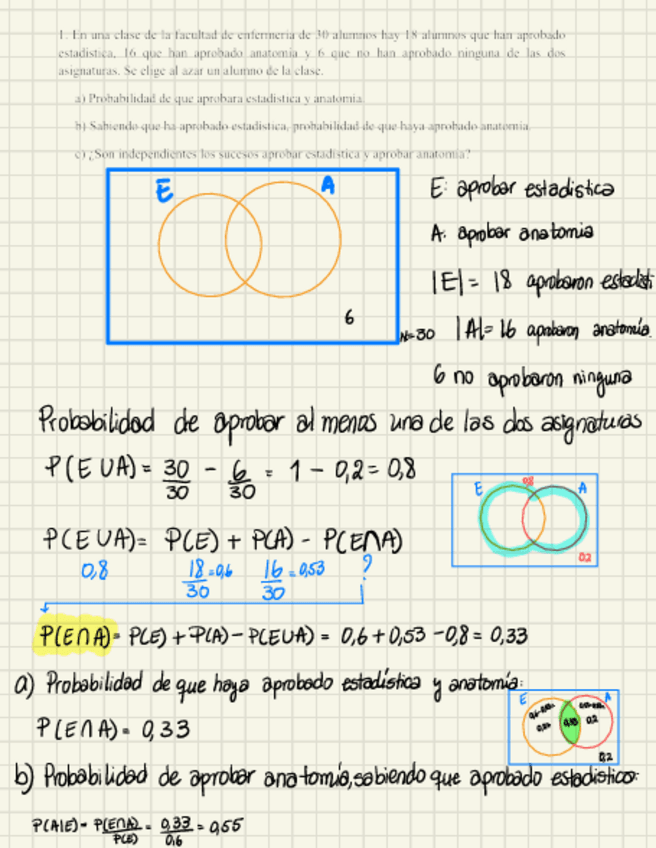 1. En una clase de la facultad de enfermería de 30 alumnos hay 18 alumnos que han aprobado
estadística, 16 que han aprobado anatomía y 6 que no han aprobado ninguna de las dos
asignaturas. Se elige al azar un alumno de la clase.
a) Probabilidad de que aprobara estadística y anatomía.
b) Sabiendo que ha aprobado estadística, probabilidad de que haya aprobado anatomía.
c) ¿Son independientes los sucesos aprobar estadística y aprobar anatomía?
E A
6
N=30
E: aprobar estadística
A: aprobar anatomia
|E| = 18 aprobaron estadísti
|A|= 16 aprobaron anatomía.
6 no aprobaron ninguna
Probabilidad de aprobar al menos una de las dos asignaturas
P(E ∪ A) = 30/30 - 6/30 = 1 - 0,2 = 0,8
E 0,8 A
0,2
P(E∪A) = P(E) + P(A) - P(E∩A)
0,8 18/30 = 0,6 16/30 = 0,53 ?
P(E∩A) = P(E) + P(A) - P(E∪A) = 0,6 + 0,53 - 0,8 = 0,33
a) Probabilidad de que haya aprobado estadística y anatomía:
P(E∩A) = 0,33
E A
0,33 0,2
0,2
b) Probabilidad de aprobar anatomía, sabiendo que aprobado estadistica:
P(A|E) = P(E∩A)/P(E) = 0,33/0,6 = 0,55